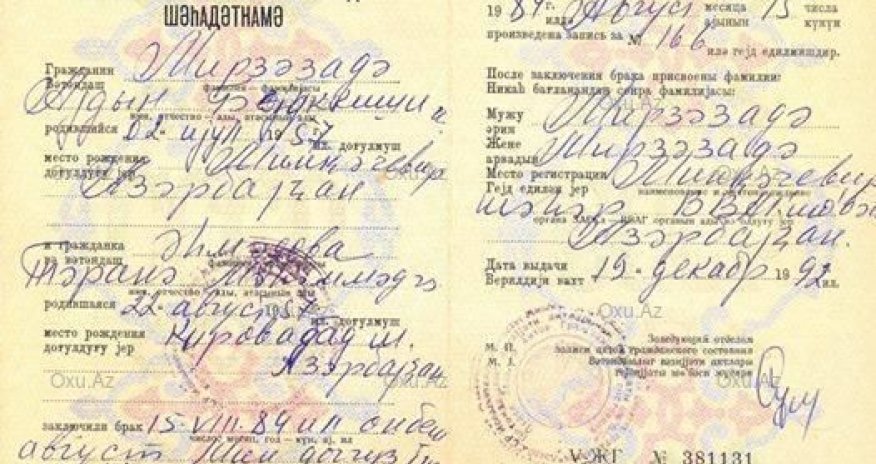 ШӘҺАДӘТНАМӘ
Гражданин
Вәтәндаш
Мирзәзадә
фамилия – фамилијасы
Ајдын
имя, отчество – ады, атасынын ады
родившийся 02. ијул 1957 г.
ил. догулмуш
место рождения
догулдуғу јер
Минҝәчевир
Азәрбајҹан
и гражданка
вә вәтәндаш
Әһмәдова
Тәранә
имя, отчество – ады, атасынын ады
родившаяся 22. август 1957
ил. догулмуш
место рождения
догулдуғу јер
Кировабад ш.
Азәрбајҹан
заключили брак 15. VIII. 84 ил
число, месяц, год – күн, ај, ил
август Мин доггуз
19 84 г. илдә Август месяца ајынын 15 числа күнүн
произведена запись за № 166 илә гејд едилмишдир.
После заключения брака присвоены фамилии:
Никаһ бағландыгдан сонра фамилијасы:
Мужу
әринә
Мирзәзадә
Жене
арвадын
Мирзәзадә
Место регистрации
Гејд едилән јер
Минҝәчевир
шәһәр
Азәрбајҹан.
Дата выдачи
Верилдији вахт 19. декабр 1992 ил.
М. П.
М. Ј.
Заведующий отделом
записи актов гражданского состояния
Вәтәндашлыг вәзијјәти актлары
гејдијјаты шө'бәси мүдири
V-ЖГ № 381131
Oxu.Az
Oxu.Az
Oxu.Az
Oxu.Az
Oxu.Az